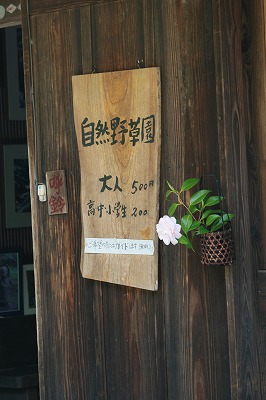 自然野草園
大人 500円
高中小学生 200
呼鈴